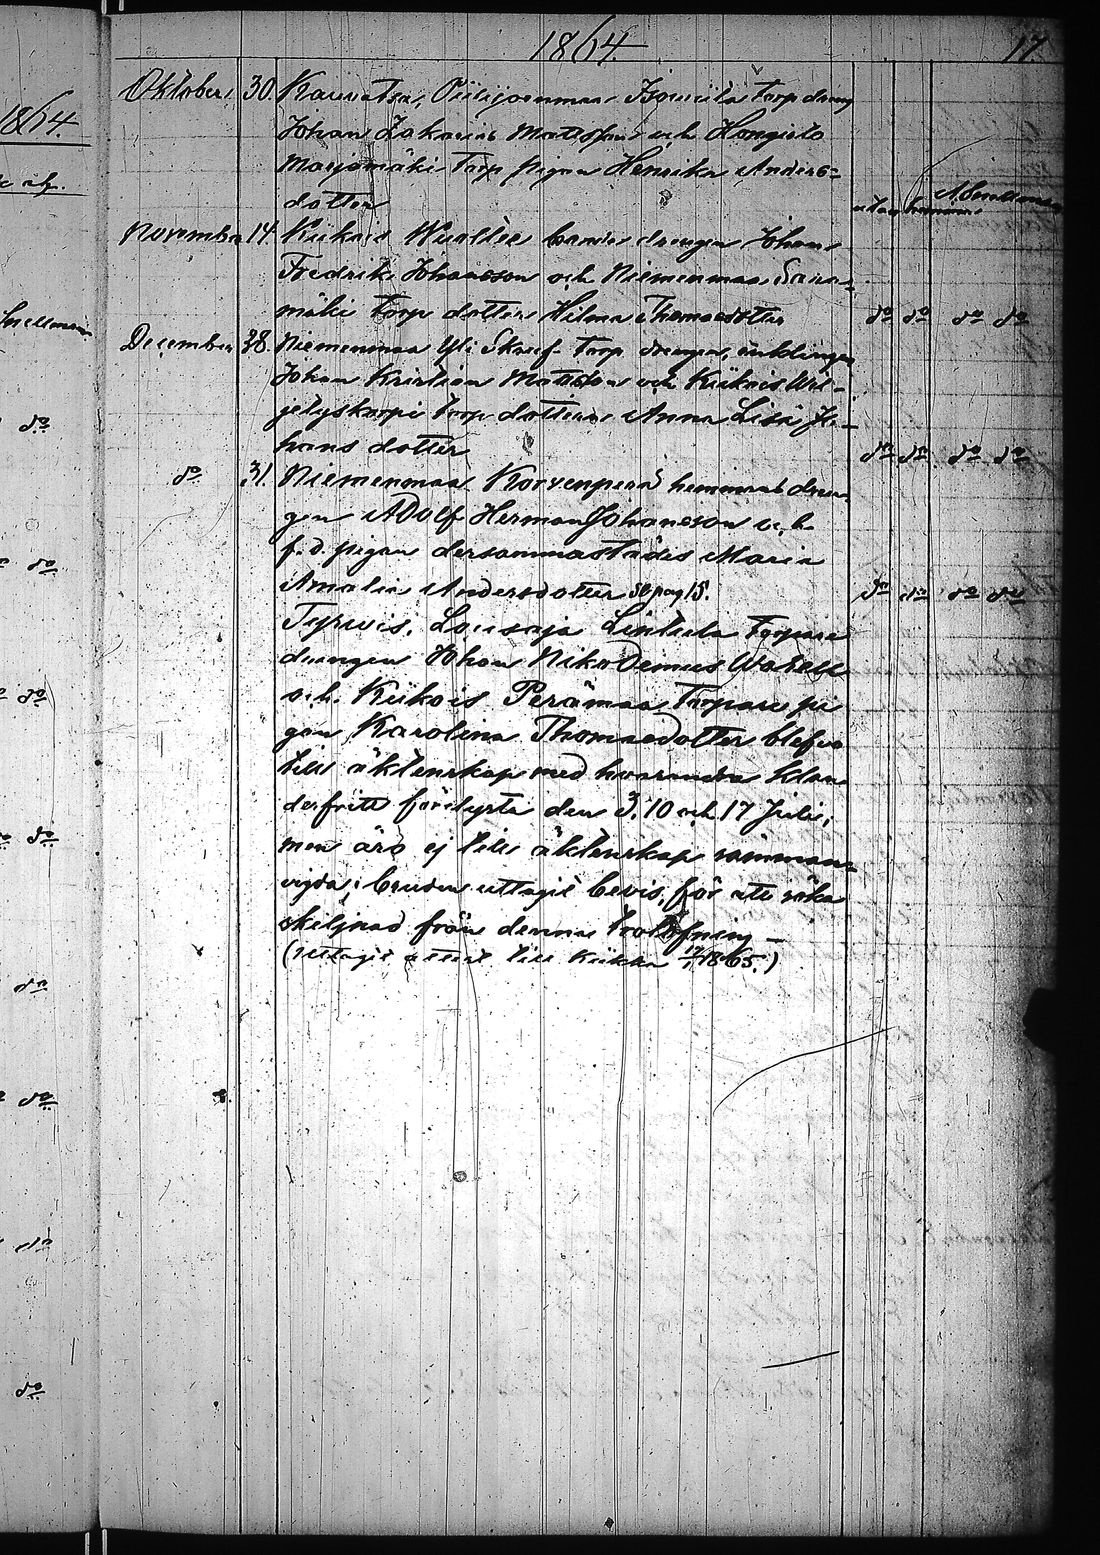 1864.
17.
Oktober 30. Kauvatsa, Isomiila Torp dreng
Johan Zakarias Mattsson och Hongisto
Marjamäki Torp pigan Henrika Anders-
dotter
November 14. Kiikois bonde drengen Johan
Fredrik Johansson och Niemenmaa
mäki Torp dotter Hilma Thomasdotter do do do do
December 28. Niemenmaa Yli Torp drengen, enklingen
Johan Kristian Mattsson och Kiikois
Torp dottern Anna Lisa Jo-
hansdotter do do do do
do 31. Niemenmaa Korvenperä hemmans dren-
gen Adolf Herman Johansson och
f.d. pigan dersammastädes Maria
Amalia Andersdotter se pag 15. do do do do
Tyrvis, Lousaja Lintula Torpare
drengen Johan Nikodemus
och Kiikois Perämaa Torpare pi
gan Karolina Thomasdotter blefvo
till äktenskap med hvarandra klan
derfritt förelysta den 3, 10 och 17 Julii,
men äro ej till äktenskap samman-
vigda; bruden uttagit bevis, för att söka
skilnad från denna trolofning —
(uttagit attest till Kiikka 1865.)
1864.
do
do
do
do
do
do
do
do